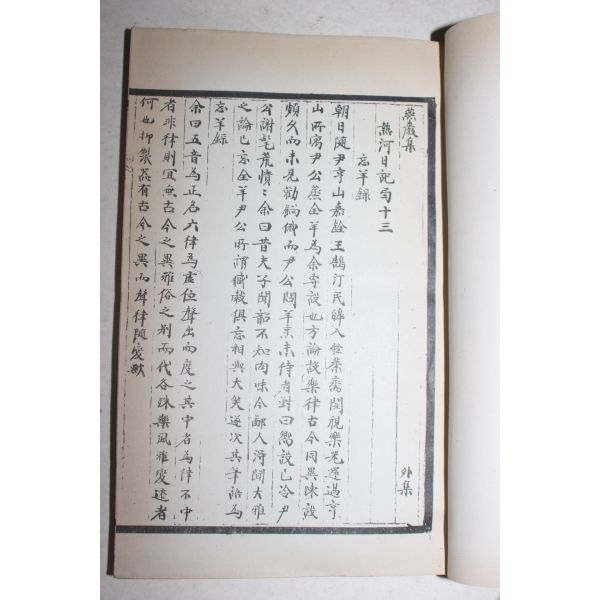 燕巖集　外集
熱河日記 弓十三
忘羊録
朝日随尹亨山嘉銓王鵠汀民皥入修業齋閱視樂器還過亨
山所寓尹公蒸全羊為余専設也方論説樂律古今同異陳設
頗久而未見勸餉俄而尹公問羊烹未侍者對曰嚮設已冷尹
公謝耄荒憒〻余曰昔夫子聞韶不知肉味今鄙人得聞大雅
之論已忘全羊尹公所謂臧穀俱忘相與大笑遂次其筆語為
忘羊録
余曰五音為正名六律為虛位聲出而度之其中者為律不中
者非律則冝無古今之異雅俗之別而代各殊樂風雅变遠者
何也抑製器有古今之異而聲律随变歟